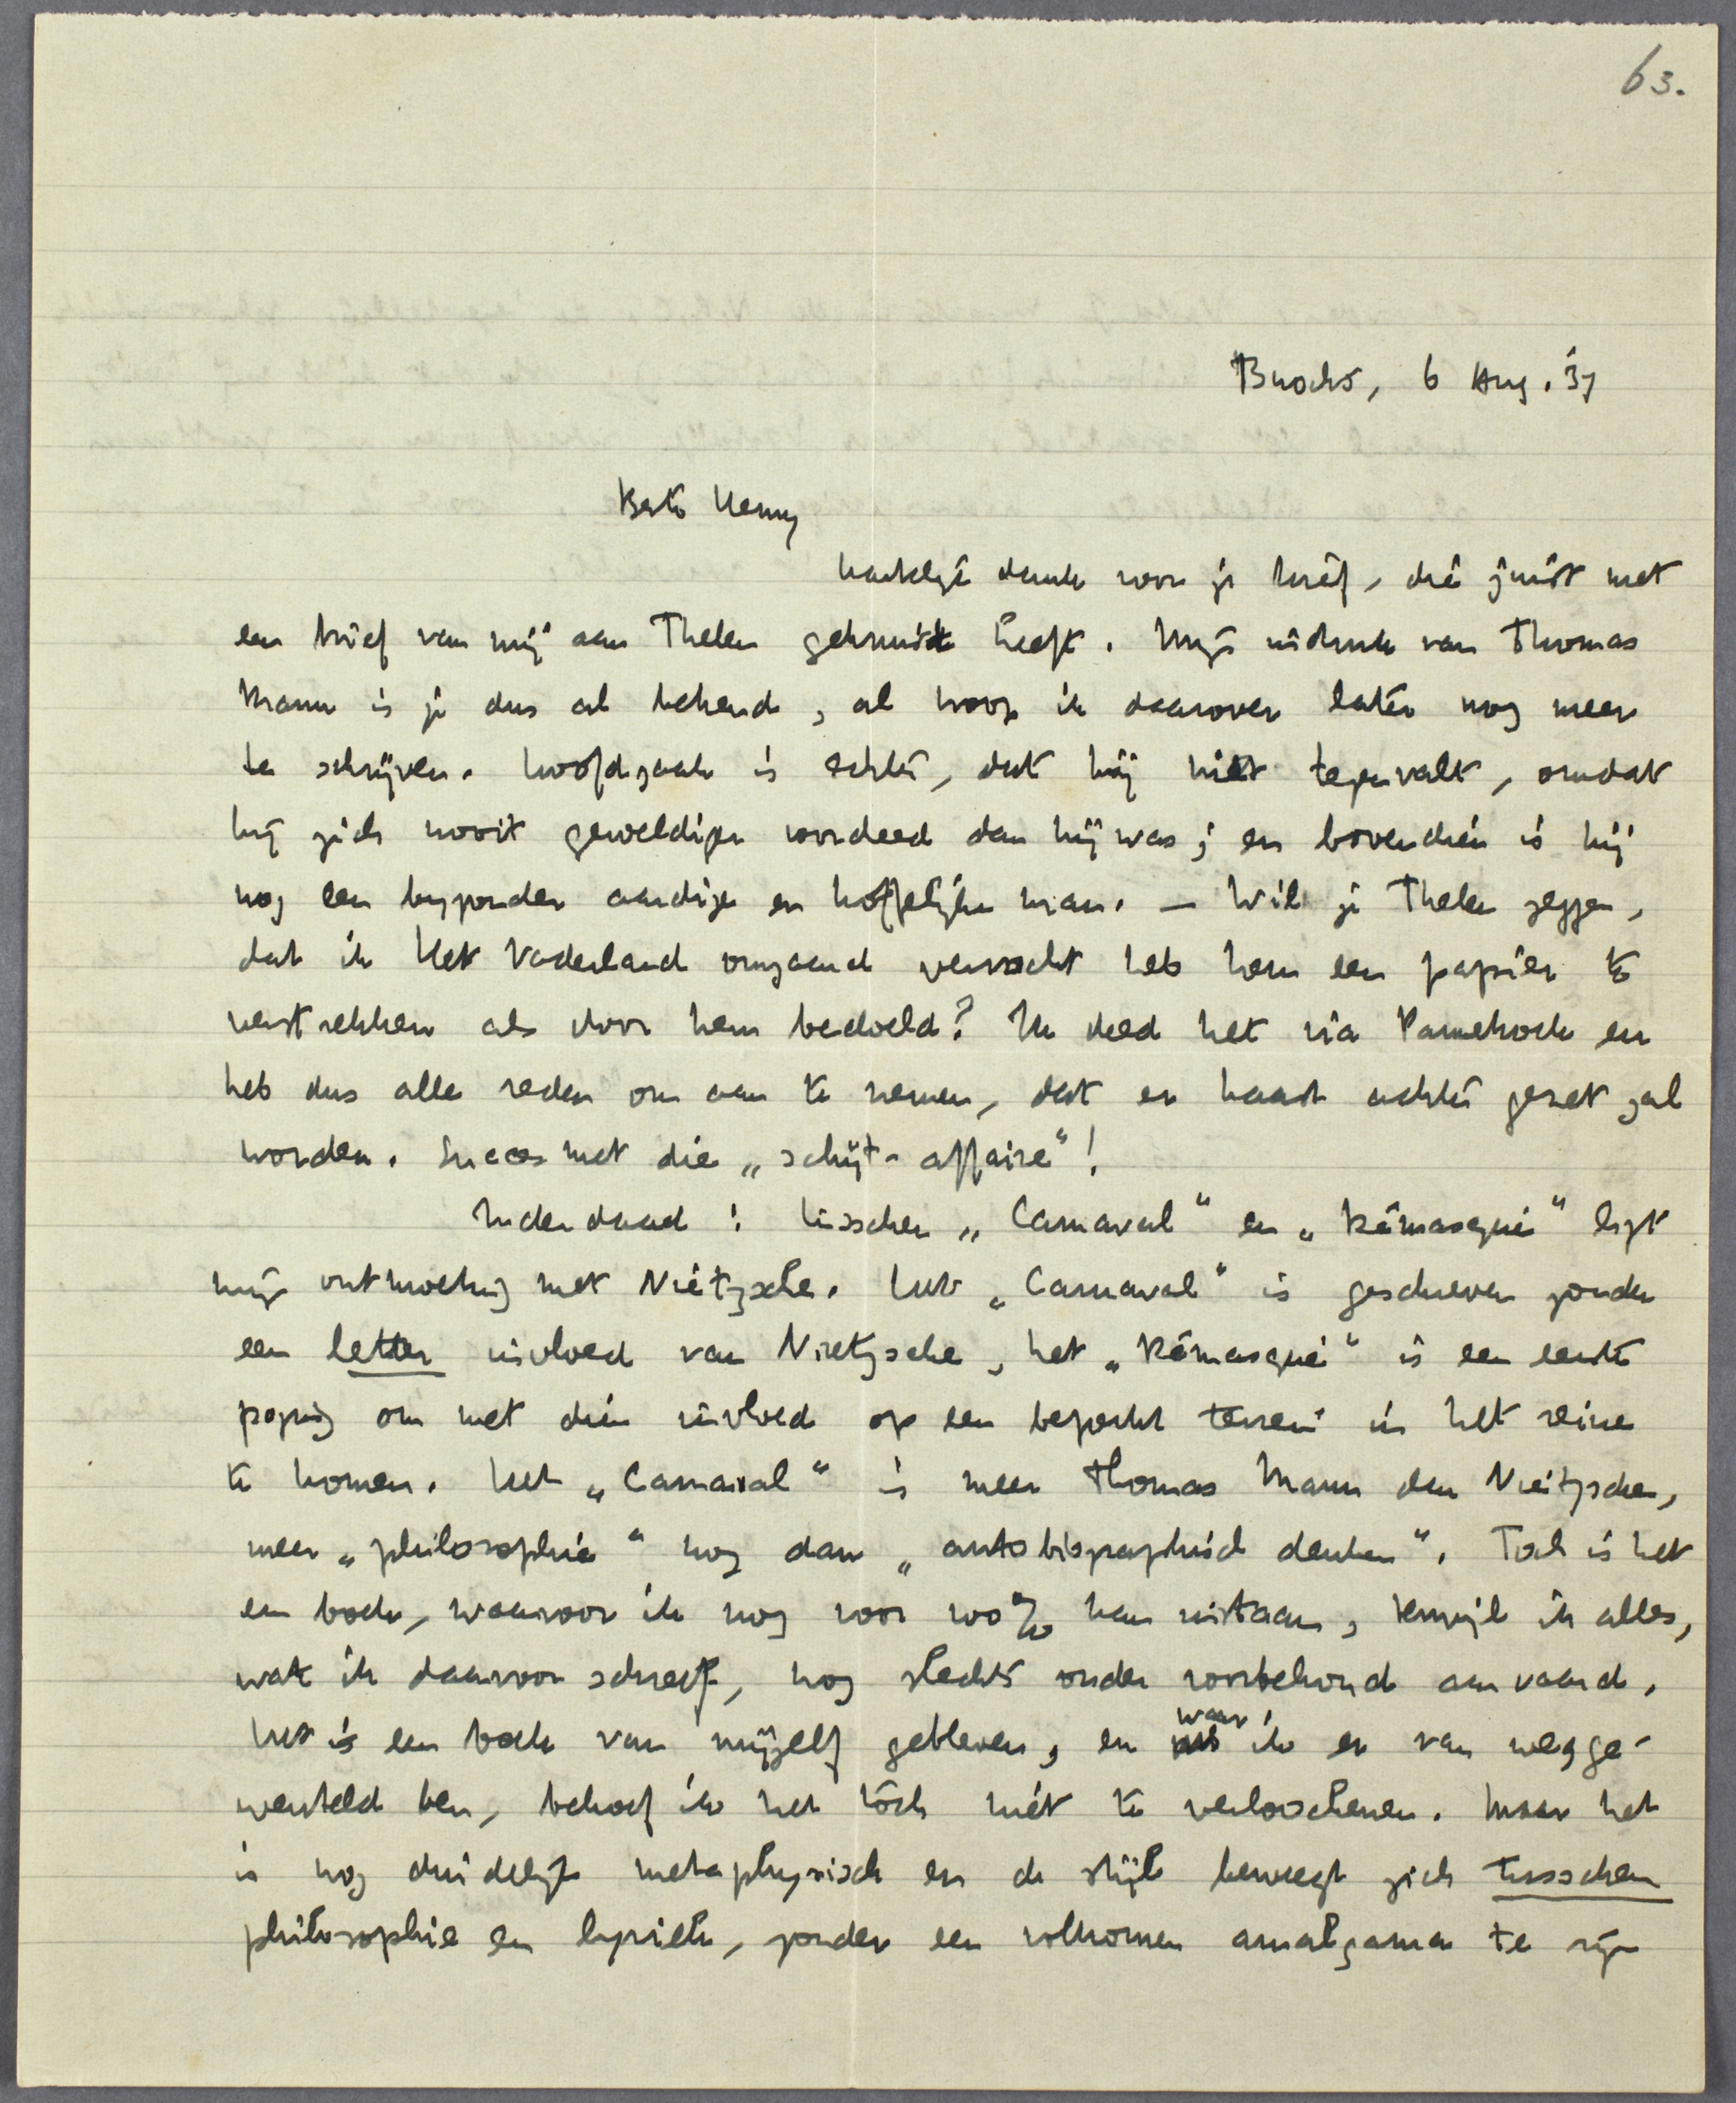 63.
Buochs, 6 Aug. '37
Beste Henny
hartelijk dank voor je brief, die juist met
een brief van mij aan Thelen gekruist heeft. Mijn indruk van Thomas
Mann is je dus al bekend, al hoop ik daarover later nog meer
te schrijven. Hoofdzaak is echter, dat hij niet tegenvalt, omdat
hij zich nooit geweldiger voordeed dan hij was; en bovendien is hij
nog een byzonder aardige en hoffelijke man. — Wil je Thelen zeggen,
dat ik Het Vaderland omgaand verzocht heb hem een papier te
verstrekken als door hem bedoeld? Ik deed het via Pannekoek en
heb dus alle reden om aan te nemen, dat er haast achter gezet zal
worden. Succes met die „schijt-affaire"!
Inderdaad: tusschen „Carnaval" en „Démasqué" ligt
mijn ontmoeting met Nietzsche. Het „Carnaval" is geschreven zonder
een letter invloed van Nietzsche, het „Démasqué" is een eerste
poging om met dien invloed op een beperkt terrein in het reine
te komen. Het „Carnaval" is meer Thomas Mann dan Nietzsche,
meer „philosophie" nog dan „autobiographisch denken". Toch is het
een boek, waarvoor ik nog voor 100% kan instaan, terwijl ik alles,
wat ik daarvoor schreef, nog slechts onder voorbehoud aanvaard.
Het is een boek van mijzelf gebleven, en waar ik er van wegge-
wenteld ben, behoef ik het tòch niet te verloochenen. Maar het
is nog duidelijk metaphysisch en de stijl beweegt zich tusschen
philosophie en lyriek, zonder een volkomen amalgama te zijn